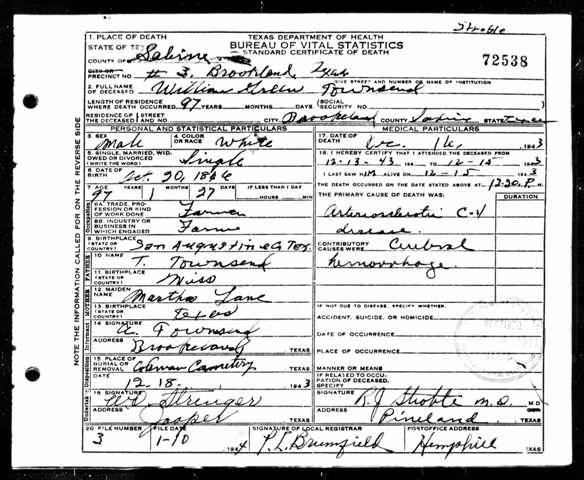 Strobte
1. PLACE OF DEATH
STATE OF TEXAS
TEXAS DEPARTMENT OF HEALTH
BUREAU OF VITAL STATISTICS
STANDARD CERTIFICATE OF DEATH
72538
COUNTY OF Sabine
CITY OR PRECINCT NO. # 3, Brookland, Texas
GIVE STREET AND NUMBER OR NAME OF INSTITUTION
2. FULL NAME OF DECEASED William Green Townsend
LENGTH OF RESIDENCE WHERE DEATH OCCURRED 97 YEARS MONTHS DAYS (SOCIAL SECURITY NO.
RESIDENCE OF THE DECEASED STREET AND NO. CITY Brookeland COUNTY Sabine STATE Texas
NOTE THE INFORMATION CALLED FOR ON THE REVERSE SIDE
PERSONAL AND STATISTICAL PARTICULARS
3. SEX Male 4. COLOR OR RACE White
5. SINGLE, MARRIED, WIDOWED OR DIVORCED (WRITE THE WORD) Single
6. DATE OF BIRTH Oct. 20, 1846
7. AGE YEARS MONTHS DAYS IF LESS THAN 1 DAY
97 1 27 HOURS MIN.
8A. TRADE, PROFESSION OR KIND OF WORK DONE Farmer
8B. INDUSTRY OR BUSINESS IN WHICH ENGAGED Farm
9. BIRTHPLACE (STATE OR COUNTRY) San Augustine Co, Tex.
FATHER
10. NAME T. Townsend
11. BIRTHPLACE (STATE OR COUNTRY) Miss
MOTHER
12. MAIDEN NAME Martha Lane
13. BIRTHPLACE (STATE OR COUNTRY) Texas
14. SIGNATURE A. Townsend
ADDRESS Brookeland TEXAS
15. PLACE OF BURIAL OR REMOVAL Coleman Cemetery TEXAS
DATE 12-18. 1943
16. SIGNATURE Wd. Stringer
ADDRESS Jasper TEXAS
MEDICAL PARTICULARS
17. DATE OF DEATH Dec. 16, 1943
18. I HEREBY CERTIFY THAT I ATTENDED THE DECEASED FROM
12-13-43 19 TO 12-15 1943
I LAST SAW HIM ALIVE ON 12-15 1943
THE DEATH OCCURRED ON THE DATE STATED ABOVE AT 12:20 P. M.
THE PRIMARY CAUSE OF DEATH WAS: DURATION
Arteriosclerotic C-V
disease.
CONTRIBUTORY CAUSES WERE: Cerebral
hemorrhage.
IF NOT DUE TO DISEASE, SPECIFY:
ACCIDENT, SUICIDE, OR HOMICIDE
DATE OF OCCURRENCE
PLACE OF OCCURRENCE
MANNER OR MEANS
IF RELATED TO OCCUPATION OF DECEASED, SPECIFY
SIGNATURE R J Strobte M.D. M.D.
ADDRESS Pineland TEXAS
20. FILE NUMBER FILE DATE SIGNATURE OF LOCAL REGISTRAR POSTOFFICE ADDRESS
3 1-10 1944 P. L. Brumfield Hemphill TEXAS